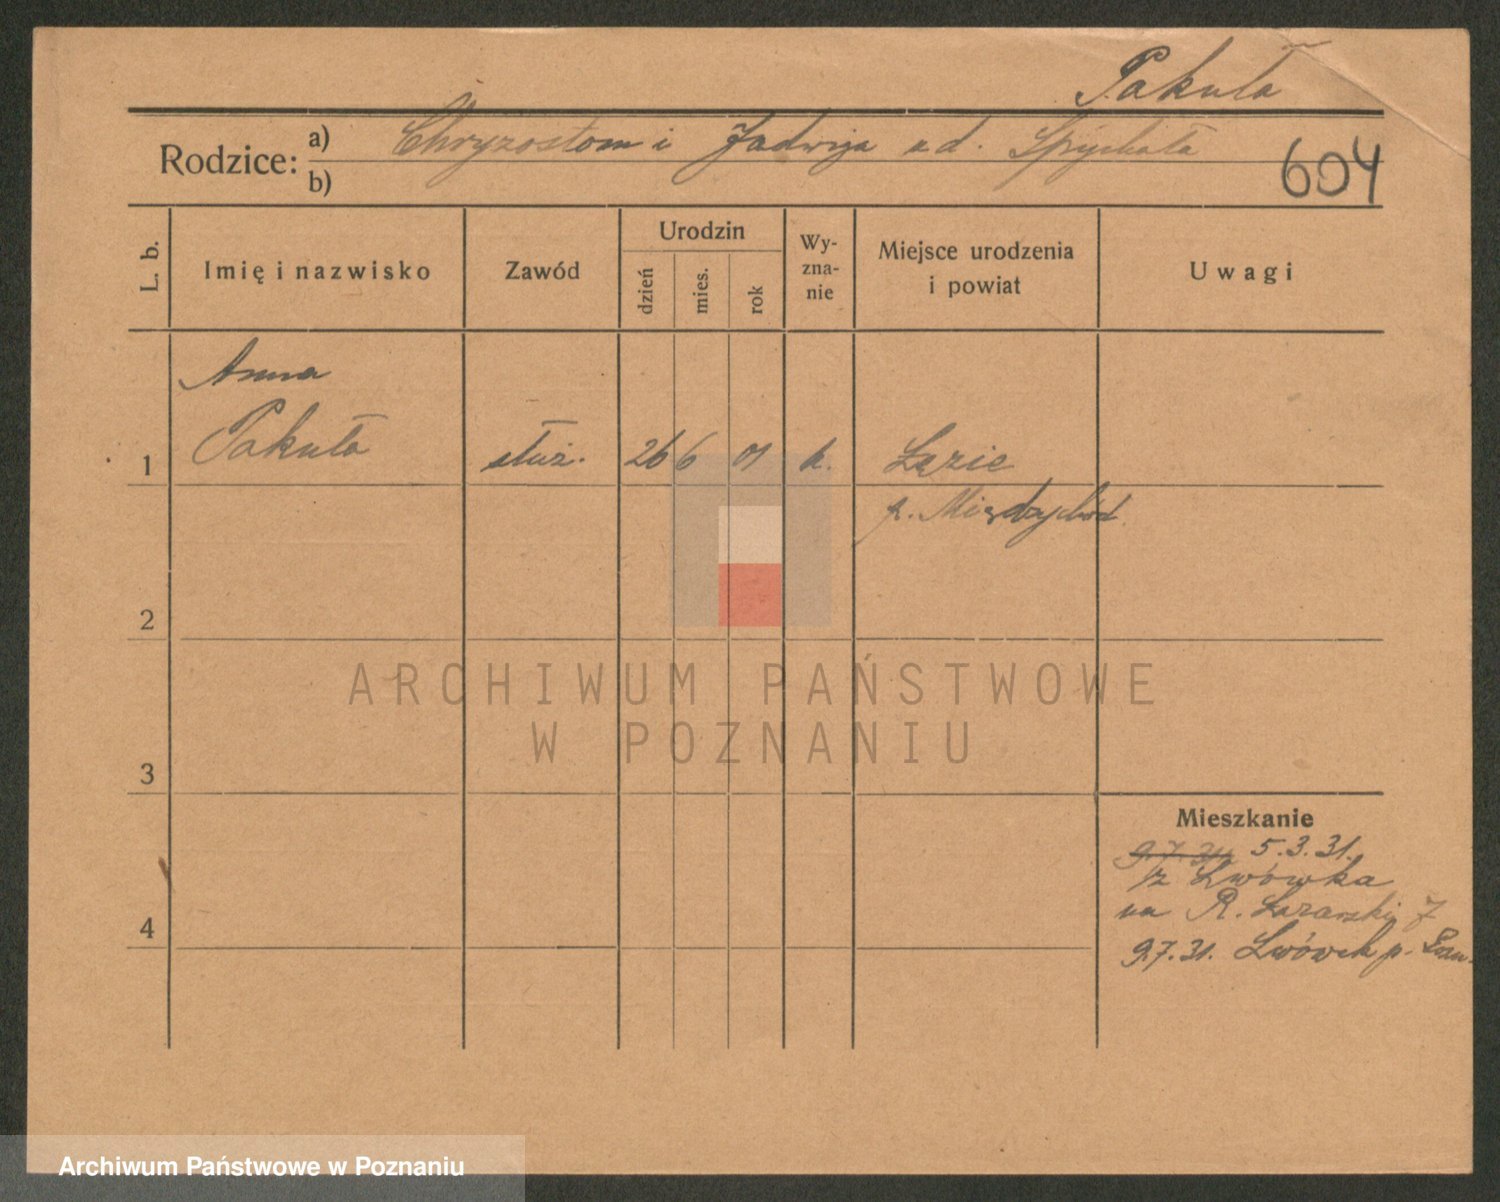 Pakuła
Rodzice: a) Chryzostom i Jadwiga ud. Spychała
b)
604
L. b.
Imię i nazwisko
Zawód
Urodzin
dzień
mies.
rok
Wy-
zna-
nie
Miejsce urodzenia
i powiat
Uwagi
Anna
1 Pakuła służ. 26 6 01 k. Łęzie
p. Międzychód
2
ARCHIWUM PAŃSTWOWE
W POZNANIU
3
Mieszkanie
9.7.31. 5.3.31.
z Lwówka
na R. Łazarski 7
4
9.7.31. Lwówek p.
Archiwum Państwowe w Poznaniu